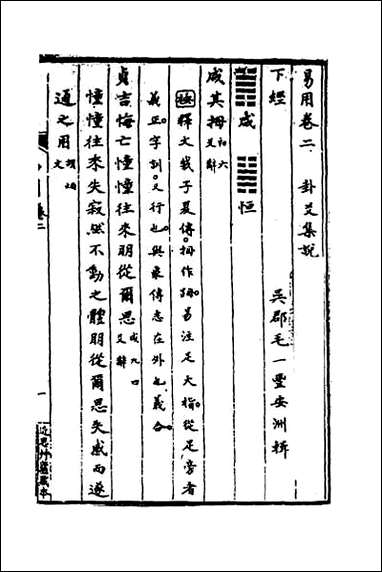 易用卷二 卦爻集說
吳郡毛一豐安洲輯
下經
咸 恒
咸其拇初六爻辭
按釋文載子夏傳拇作𧿹易注足大指從足旁者
義正字訓又行也與彖傳志在外也義合
貞吉悔亡憧憧往來朋從爾思爻辭
憧憧往來失寂然不動之體朋從爾思失感而遂
通之用
卷二
一